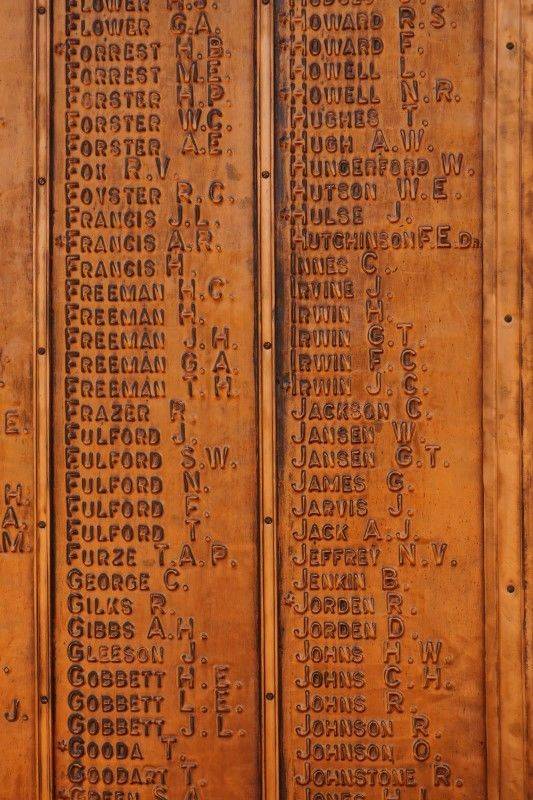 E.
H.
A.
M.
J.
FLOWER H.J.
FLOWER G.A.
*FORREST H.B.
FORREST M.E.
*FORSTER H.P.
FORSTER W.C.
*FORSTER A.E.
FOX R.V.
FOYSTER R.C.
FRANCIS J.L.
*FRANCIS A.R.
FRANCIS H.
FREEMAN H.C
FREEMAN H.
FREEMAN J.H.
FREEMAN G.A.
FREEMAN T.H.
FRAZER R.
FULFORD J.
FULFORD S.W.
FULFORD N.
FULFORD F.
FULFORD T.
FURZE T.A.P.
GEORGE C.
GILKS R.
GIBBS A.H.
GLEESON J.
GOBBETT H.E.
GOBBETT L.E.
GOBBETT J.L.
*GOODA T.
GOODART T.
*GREEN S.A.
HOWARD R.S.
*HOWARD F.
HOWELL L.
*HOWELL N.R.
HUGHES T.
*HUGH A.W.
HUNGERFORD W.
HUTSON W.E.
*HULSE J.
HUTCHINSON F.E.DR.
INNES C.
IRVINE J.
IRWIN H.
IRWIN G.T.
IRWIN F.C.
*IRWIN J.C.
JACKSON C.
JANSEN W.
JANSEN G.T.
JAMES G.
JARVIS J.
JACK A.J.
JEFFREY N.V.
JENKIN B.
*JORDEN R.
JORDEN D.
JOHNS H.W.
JOHNS C.H.
JOHNS R.
JOHNSON R.
JOHNSON O.
JOHNSTONE R.
JONES H.J.